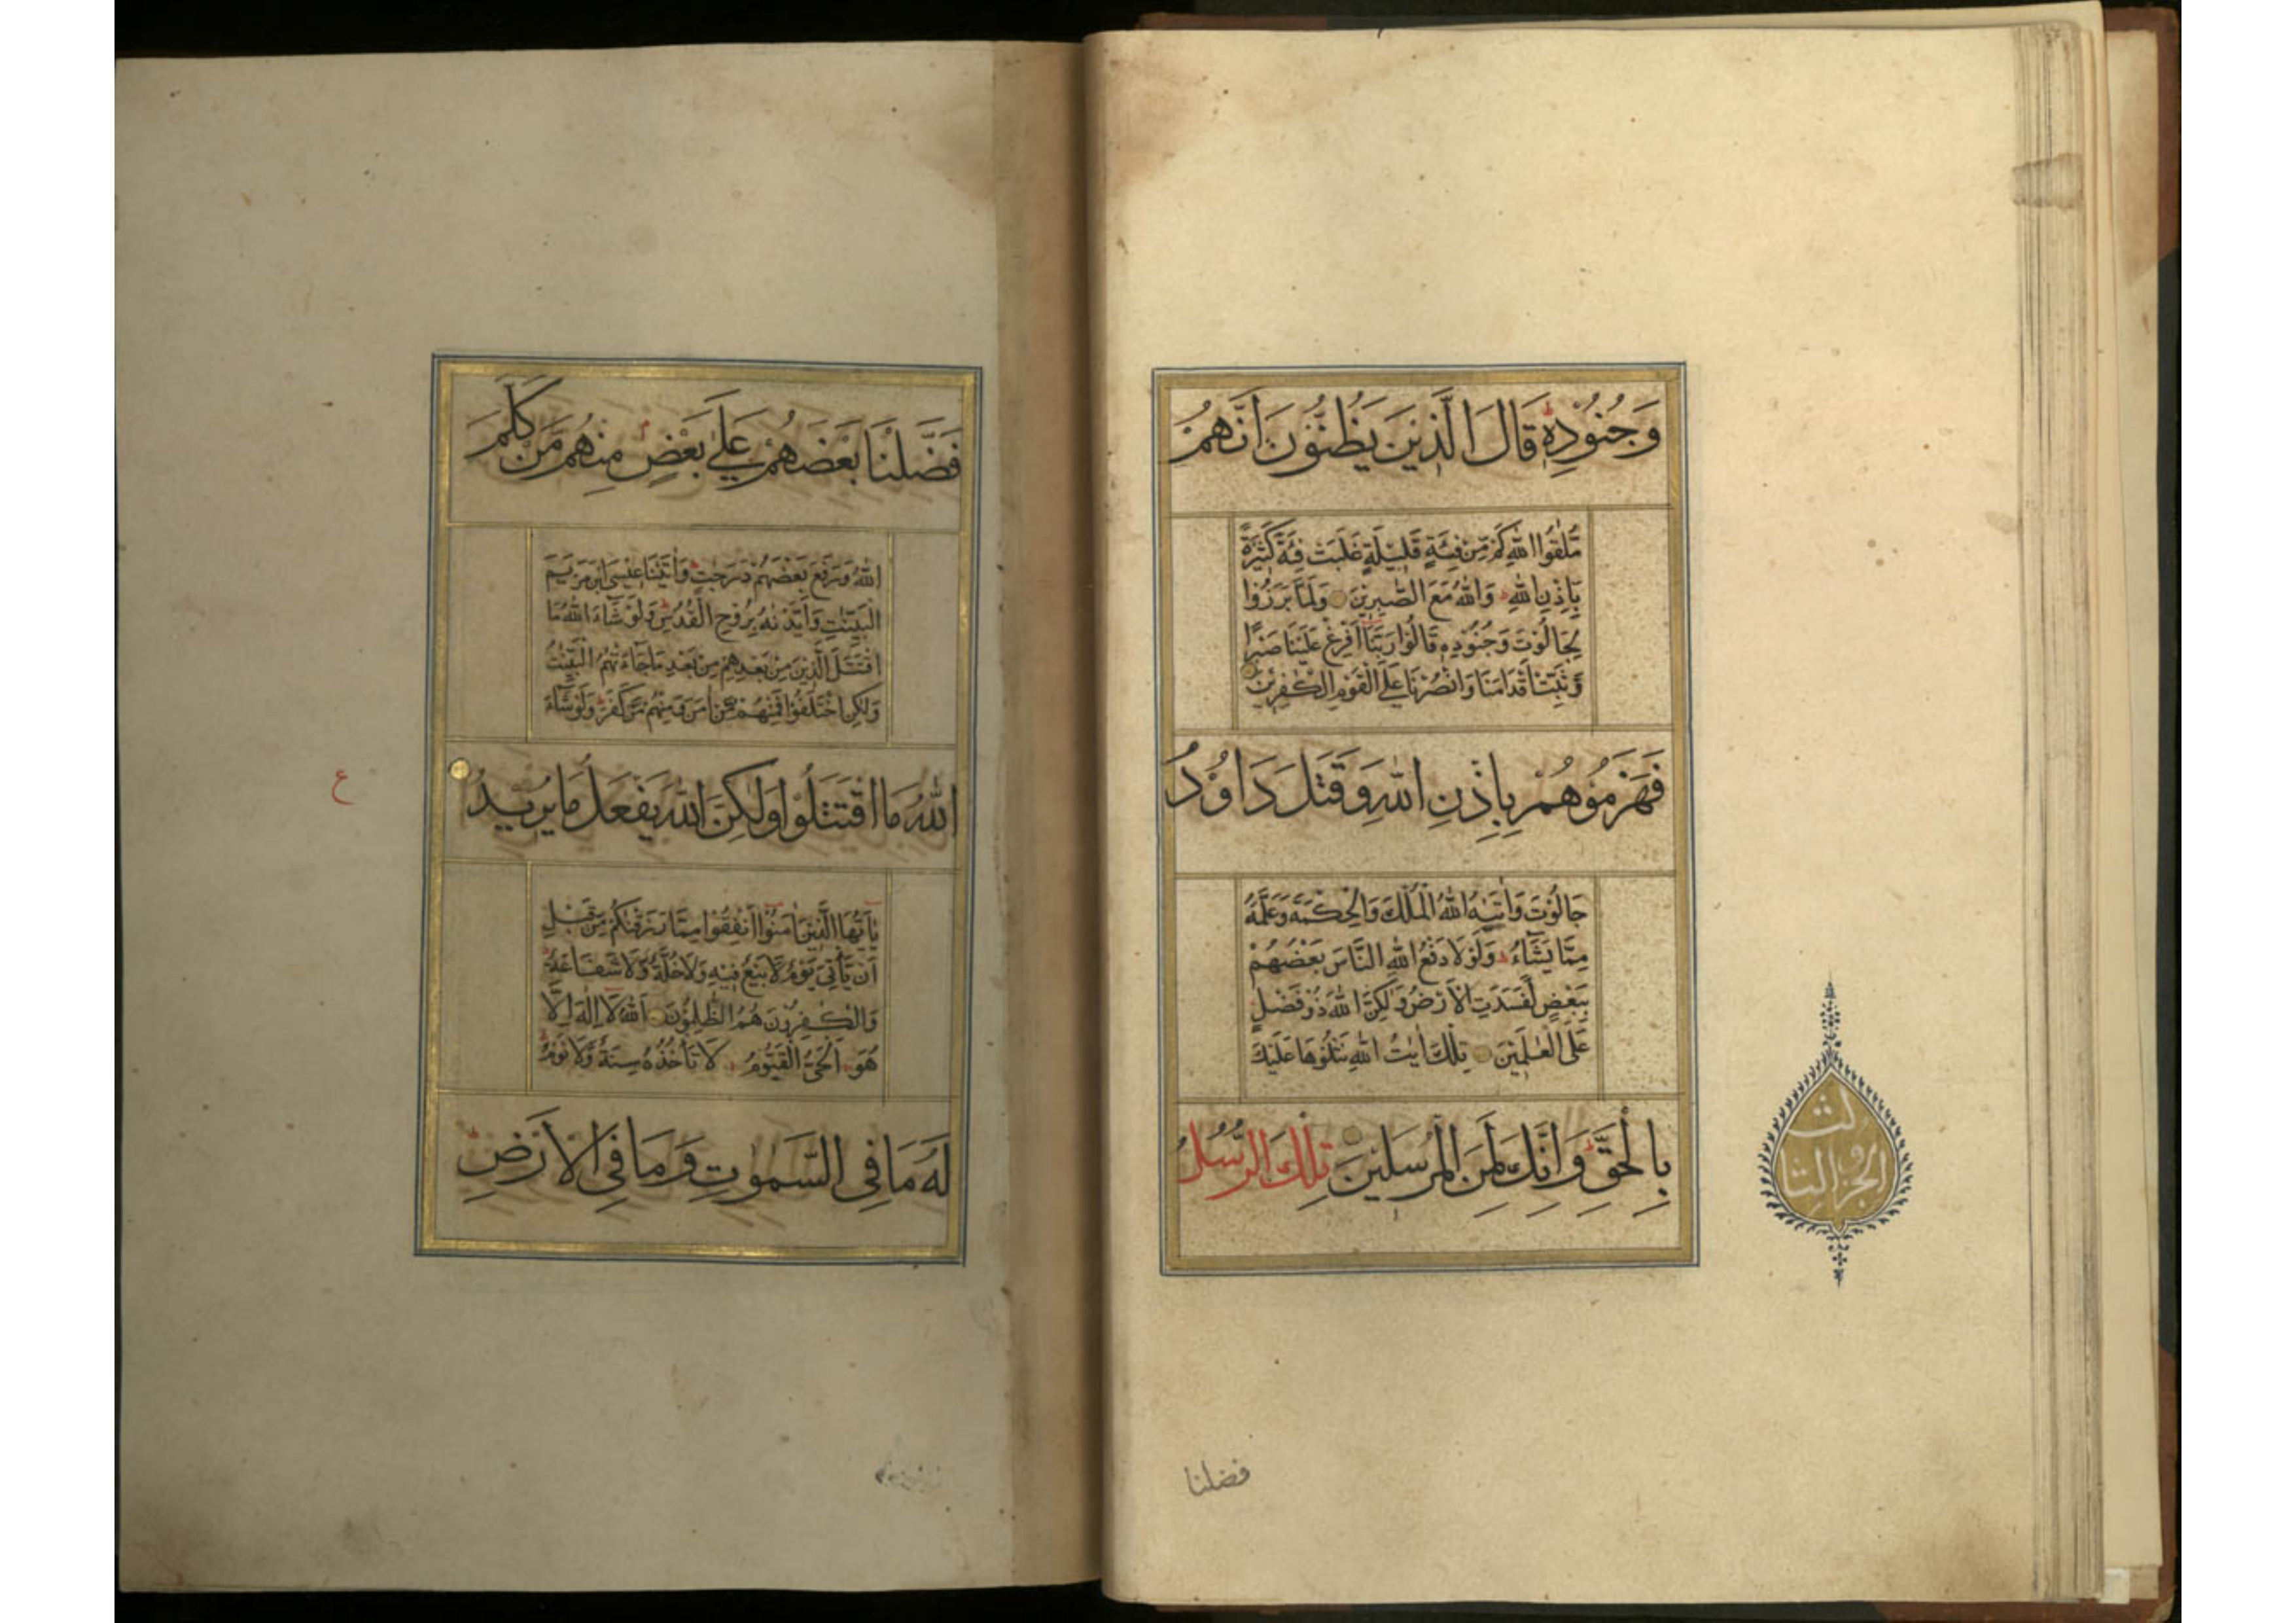 وَجُنُودِهٖ قَالَ الَّذِينَ يَظُنُّونَ اَنَّهُمْ
مُلٰقُوا اللّٰهِ كَمْ مِنْ فِئَةٍ قَلِيلَةٍ غَلَبَتْ فِئَةً كَثِيرَةً
بِاِذْنِ اللّٰهِ وَاللّٰهُ مَعَ الصّٰبِرِينَ وَلَمَّا بَرَزُوا
لِجَالُوتَ وَجُنُودِهٖ قَالُوا رَبَّنَا اَفْرِغْ عَلَيْنَا صَبْرًا
وَثَبِّتْ اَقْدَامَنَا وَانْصُرْنَا عَلَى الْقَوْمِ الْكٰفِرِينَ
فَهَزَمُوهُمْ بِاِذْنِ اللّٰهِ وَقَتَلَ دَاوُدُ
جَالُوتَ وَاٰتٰيهُ اللّٰهُ الْمُلْكَ وَالْحِكْمَةَ وَعَلَّمَهُ
مِمَّا يَشَآءُ وَلَوْلَا دَفْعُ اللّٰهِ النَّاسَ بَعْضَهُمْ
بِبَعْضٍ لَفَسَدَتِ الْاَرْضُ وَلٰكِنَّ اللّٰهَ ذُو فَضْلٍ
عَلَى الْعٰلَمِينَ تِلْكَ اٰيٰتُ اللّٰهِ نَتْلُوهَا عَلَيْكَ
بِالْحَقِّ وَاِنَّكَ لَمِنَ الْمُرْسَلِينَ تِلْكَ الرُّسُلُ
الجزو الثالث
فضلنا
فَضَّلْنَا بَعْضَهُمْ عَلٰى بَعْضٍ مِنْهُمْ مَنْ كَلَّمَ
اللّٰهُ وَرَفَعَ بَعْضَهُمْ دَرَجٰتٍ وَاٰتَيْنَا عِيسَى ابْنَ مَرْيَمَ
الْبَيِّنٰتِ وَاَيَّدْنٰهُ بِرُوحِ الْقُدُسِ وَلَوْ شَآءَ اللّٰهُ مَا
اقْتَتَلَ الَّذِينَ مِنْ بَعْدِهِمْ مِنْ بَعْدِ مَا جَآءَتْهُمُ الْبَيِّنٰتُ
وَلٰكِنِ اخْتَلَفُوا فَمِنْهُمْ مَنْ اٰمَنَ وَمِنْهُمْ مَنْ كَفَرَ وَلَوْ شَآءَ
اللّٰهُ مَا اقْتَتَلُوا وَلٰكِنَّ اللّٰهَ يَفْعَلُ مَا يُرِيدُ
ع
يٰٓاَيُّهَا الَّذِينَ اٰمَنُوا اَنْفِقُوا مِمَّا رَزَقْنٰكُمْ مِنْ قَبْلِ
اَنْ يَأْتِيَ يَوْمٌ لَا بَيْعٌ فِيهِ وَلَا خُلَّةٌ وَلَا شَفَاعَةٌ
وَالْكٰفِرُونَ هُمُ الظّٰلِمُونَ اَللّٰهُ لَآ اِلٰهَ اِلَّا
هُوَ اَلْحَيُّ الْقَيُّومُ لَا تَأْخُذُهُ سِنَةٌ وَلَا نَوْمٌ
لَهُ مَا فِى السَّمٰوٰتِ وَمَا فِى الْاَرْضِ